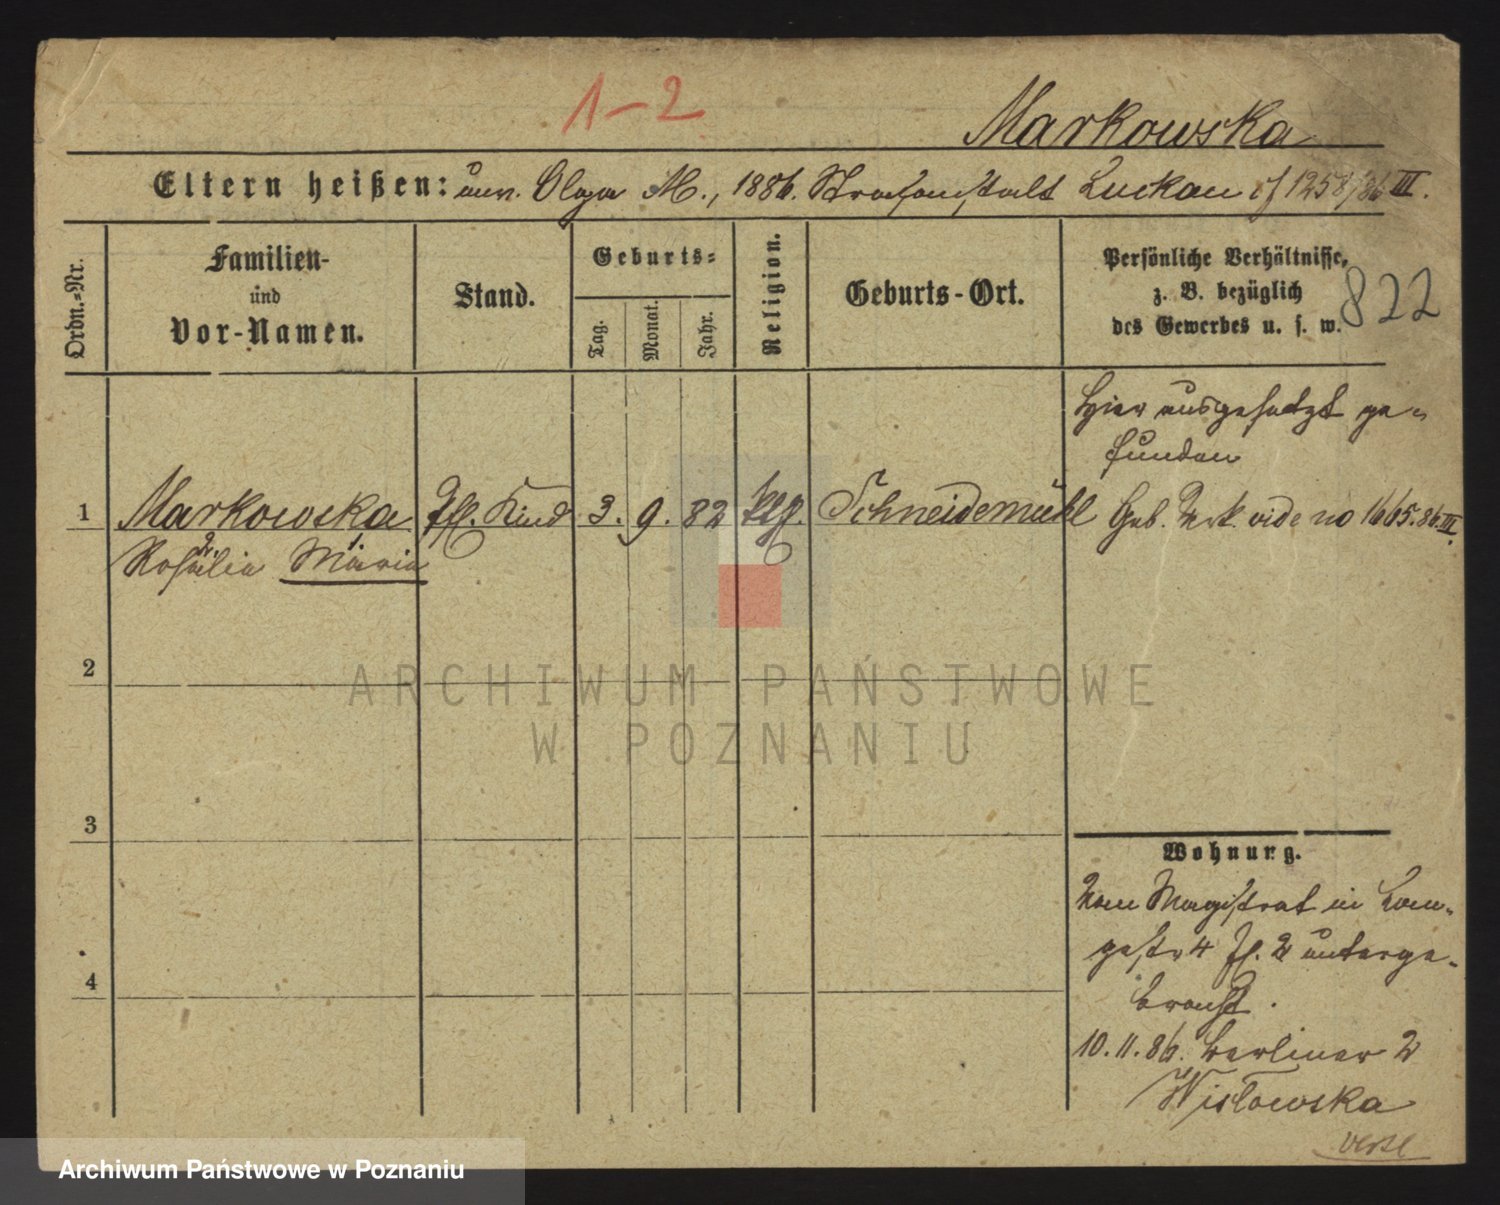 1-2
Markowska
Eltern heißen: unv. Olga M., 1886. Strafanstalt Luckau cf 1258/86 III.
Ordn.=Nr.
Familien-
und
Vor-Namen.
Stand.
Geburts=
Tag.
Monat.
Jahr.
Religion.
Geburts-Ort.
Persönliche Verhältnisse,
z. B. bezüglich
des Gewerbes u. s. w.
822
Hier ausgesetzt ge-
funden
1 Markowska Pfl. Kind 3. 9. 82 kth. Schneidemühl Geb. Urk. vide no 1665.86.III.
2. 1.
Rosalie Maria
2
3
4
Wohnung.
Vom Magistrat in Lan-
gestr 4 II. 2 unterge-
bracht.
10.11.86. Berliner 2
Wisłowska
verte
ARCHIWUM PAŃSTWOWE
W POZNANIU
Archiwum Państwowe w Poznaniu